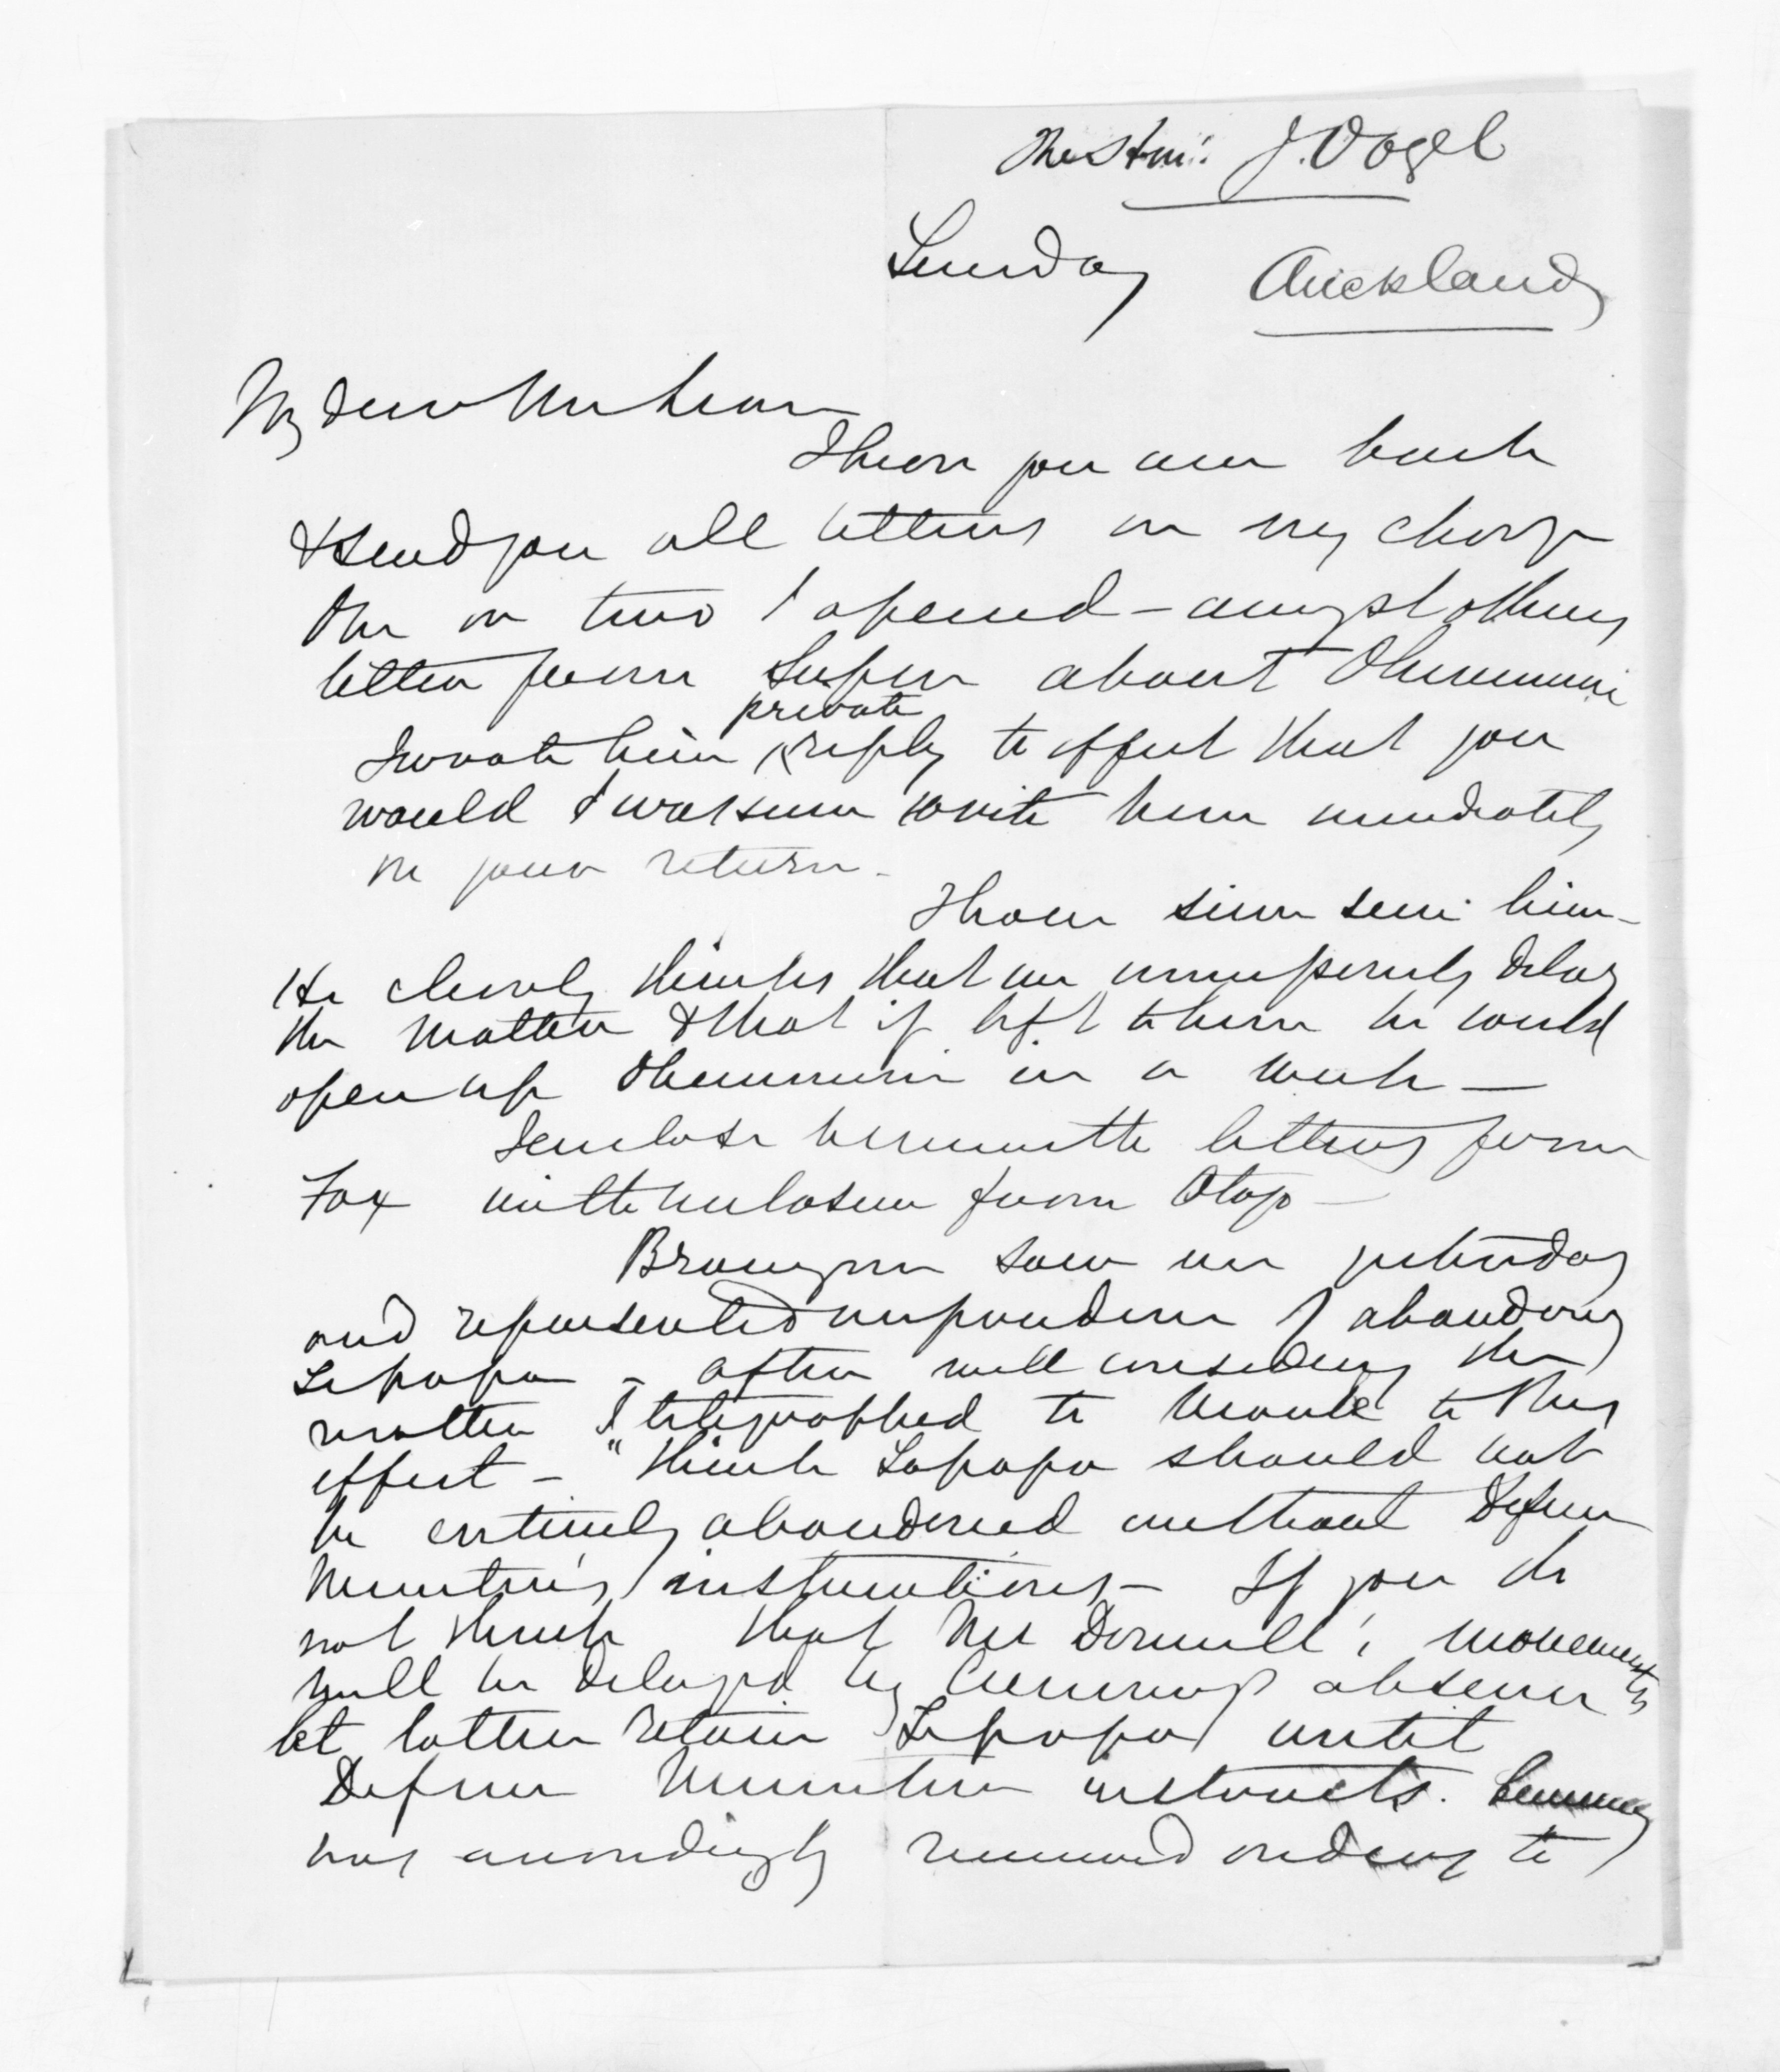 The Honble J. Vogel
Sunday Auckland
My dear McLean
I hear you are back
& send you all letters in my charge
One or two I opened - amongst others
letter from Super about Ohinemuri
private
I wrote him reply to effect that you
would I was sure write him immediately
on your return -
I have since seen him -
He clearly thinks that we unnecessarily delay
the matter & that if left to him he could
open up Ohinemuri in a week -
I enclose herewith letters from
Fox with enclosure from Otago -
Branigan saw me yesterday
and represented imprudence of abandoning
Tapapa - after well considering the
matter I telegraphed to Moule to this
effect - "Think Tapapa should not
be entirely abandoned without Defence
Minister's instructions - If you do
not think that McDonnell's movements
will be delayed by Cumming's absence
let latter retain Tapapa until
Defence Minister instructs. Cumming
has accordingly received orders to